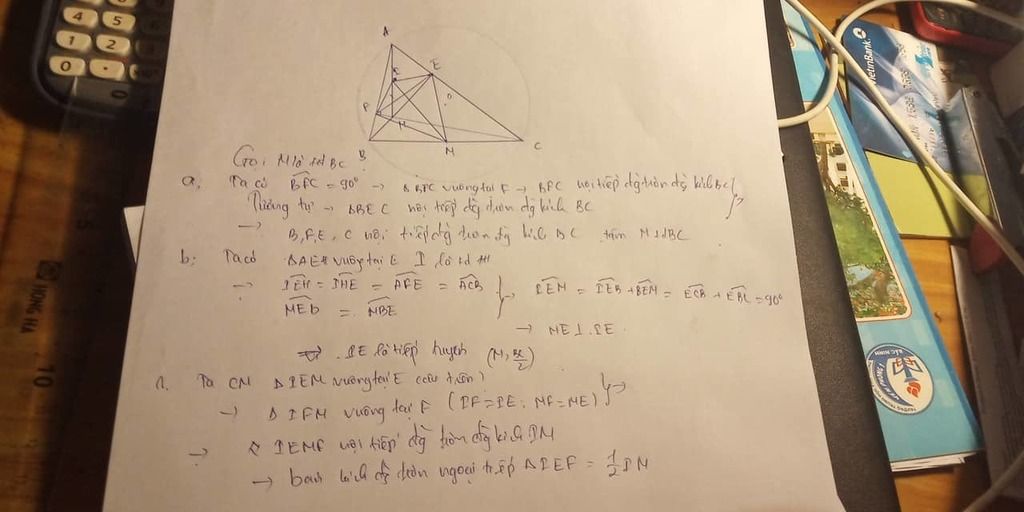 4 5
1 2
0
A
E
O
F
H
B
M
C
VietinBank
Gọi M là tđ BC.
a, Ta có BFC = 90° → Δ BFC vuông tại F → BFC nội tiếp đg tròn đg kính BC
Tương tự → ΔBEC nội tiếp đg tròn đg kính BC
→ B, F, E, C nội tiếp đg tròn đg kính BC tâm M là tđ BC
b; Ta có ΔAEH vuông tại E I là tđ AH
→ IEH = IHE = AFE = ACB
MEB = MBE
→ IEM = IEB + BEM = ECB + EBC = 90°
→ ME ⊥ IE.
IE là tiếp tuyến (M, BC/2)
Ta CM Δ IEM vuông tại E (câu trên)
→ Δ IFM vuông tại F (IF = IE; MF = ME)
→ IEMF nội tiếp đg tròn đg kính IM
→ bán kính đg tròn ngoại tiếp ΔIEF = 1/2 IM
HONG HA
10
BẮC NINH